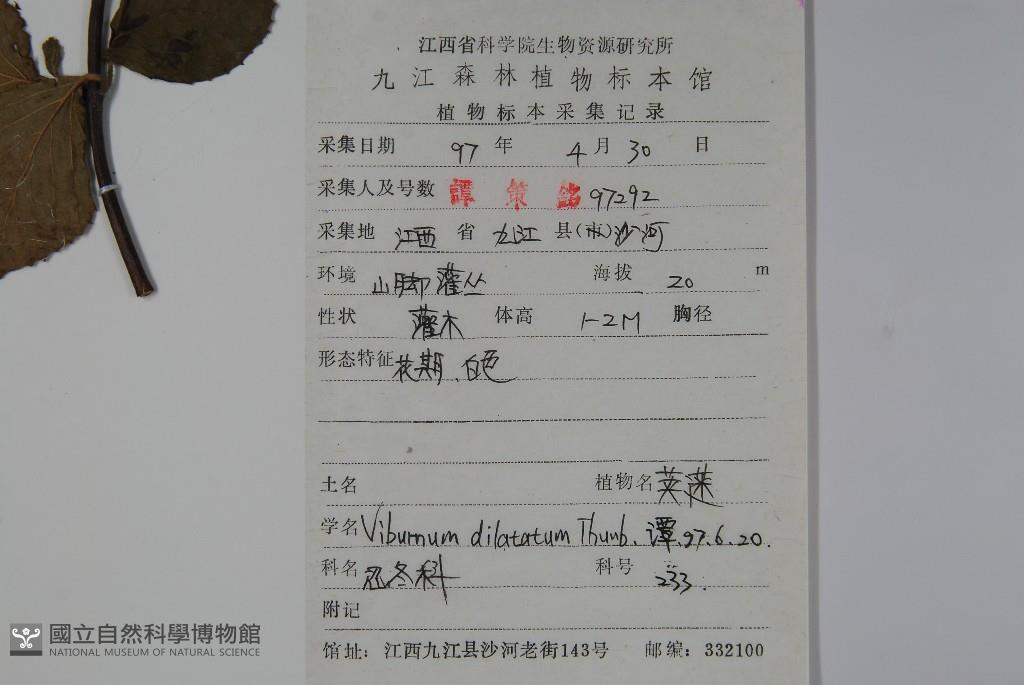 江西省科学院生物资源研究所
九江森林植物标本馆
植物标本采集记录
采集日期 97 年 4 月 30 日
采集人及号数 譚策銘 97292
采集地 江西 省 九江 县(市)沙河
环境 山脚灌丛 海拔 20 m
性状 灌木 体高 1-2M 胸径
形态特征 花期、白色
土名 植物名 荚蒾
学名 Viburnum dilatatum Thunb. 谭.97.6.20.
科名 忍冬科 科号 233.
附记
馆址：江西九江县沙河老街143号 邮编：332100
國立自然科學博物館
NATIONAL MUSEUM OF NATURAL SCIENCE